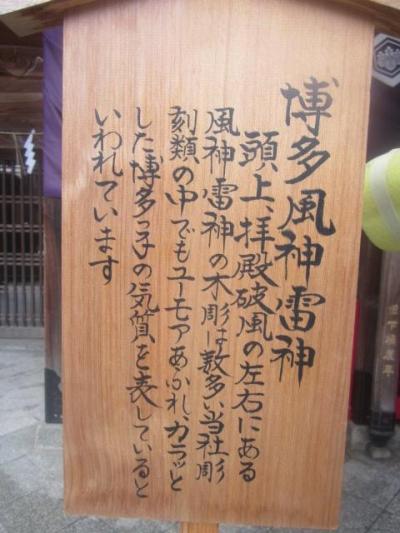 博多風神雷神
頭上、拝殿破風の左右にある
風神雷神の木彫は数多い当社彫
刻類の中でもユーモアあふれ、カラッと
した博多っ子の気質を表していると
いわれています